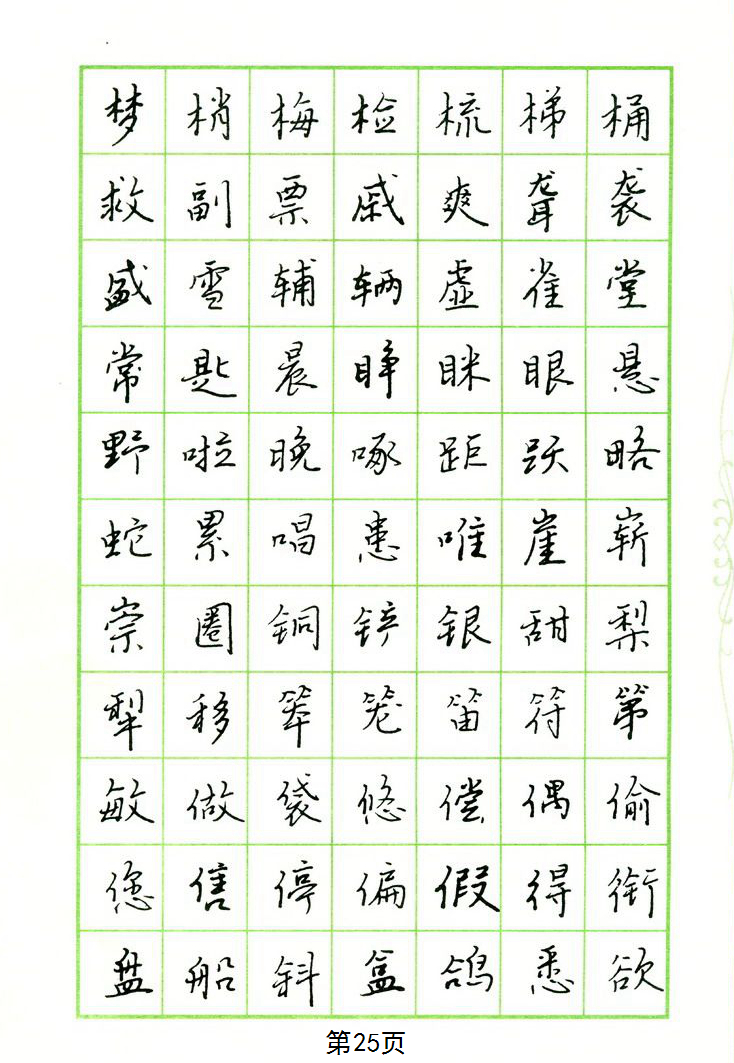 梦梢梅检梳梯桶
救副票戚爽聋袭
盛雪辅辆虚雀堂
常匙晨睁眯眼悬
野啦晚啄距跃略
蛇累唱患唯崖崭
崇圈铜铲银甜梨
犁移笨笼笛符第
敏做袋悠偿偶偷
您售停偏假得衔
盘船斜盒鸽悉欲
第25页